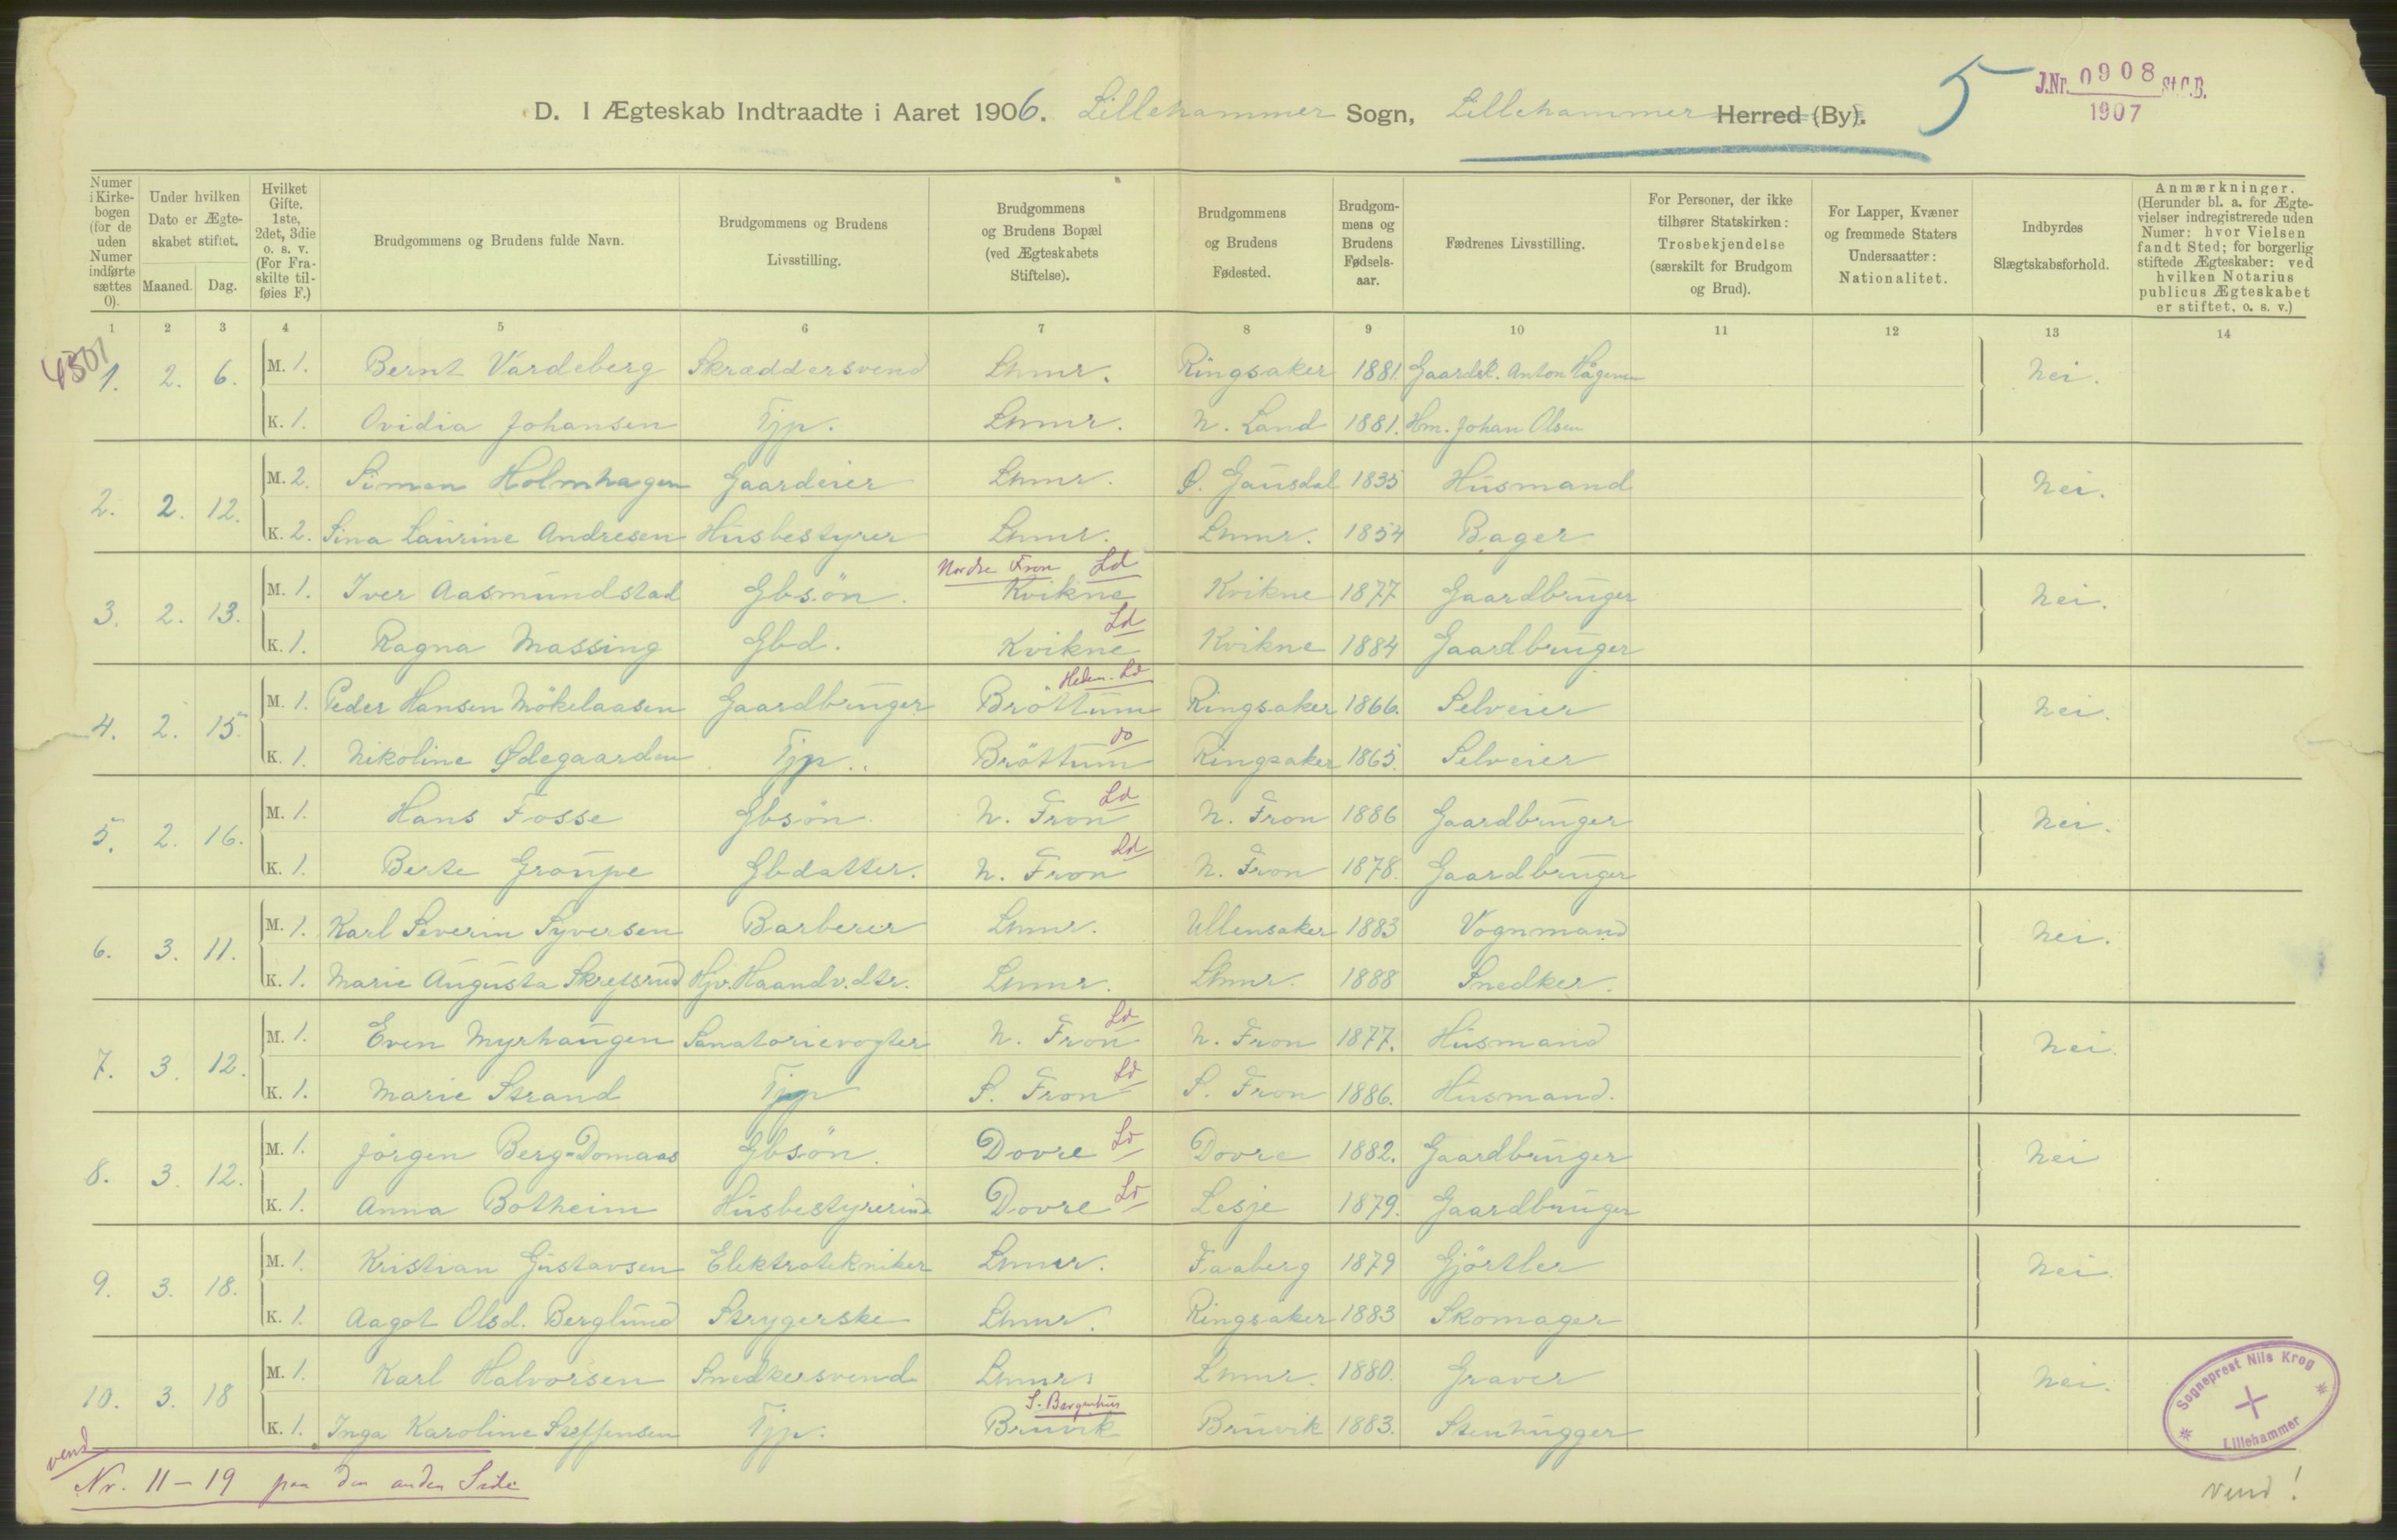 D. I Ægteskab Indtraadte i Aaret 1906. Lillehammer Sogn, Lillehammer Herred (By).
5
J.Nr. 0908 St.C.B.
1907
Numer i Kirkebogen (for de uden Numer indførte sættes 0). | Under hvilken Dato er Ægteskabet stiftet. Maaned. Dag. | Hvilket Gifte. 1ste, 2det, 3die o. s. v. (For Fraskilte tilføies F.) | Brudgommens og Brudens fulde Navn. | Brudgommens og Brudens Livsstilling. | Brudgommens og Brudens Bopæl (ved Ægteskabets Stiftelse). | Brudgommens og Brudens Fødested. | Brudgommens og Brudens Fødselsaar. | Fædrenes Livsstilling. | For Personer, der ikke tilhører Statskirken: Trosbekjendelse (særskilt for Brudgom og Brud). | For Lapper, Kvæner og fremmede Staters Undersaatter: Nationalitet. | Indbyrdes Slægtskabsforhold. | Anmærkninger. (Herunder bl. a. for Ægtevielser indregistrerede uden Numer: hvor Vielsen fandt Sted; for borgerlig stiftede Ægteskaber: ved hvilken Notarius publicus Ægteskabet er stiftet, o. s. v.)
1 2 3 4 5 6 7 8 9 10 11 12 13 14
1. 2. 6. M. 1. Bernt Vardeberg Skræddersvend Lhmr. Ringsaker 1881. Gaardbr. Anton Hagensen Nei.
K. 1. Ovidia Johansen Tjp. Lhmr. N. Land 1881. Hm. Johan Olsen
2. 2. 12. M. 2. Simen Holmhagen Gaardeier Lhmr. Ø. Gausdal 1835 Husmand Nei.
K. 2. Sina Laurine Andresen Husbestyrer Lhmr. Lhmr. 1854 Bager
Nordre Fron Ld
3. 2. 13. M. 1. Iver Aasmundstad Gbsön. Kvikne Kvikne 1877 Gaardbruger Nei.
Ld
K. 1. Ragna Massing Gbd. Kvikne Kvikne 1884 Gaardbruger
Hedm. Ld
4. 2. 15. M. 1. Peder Hansen Mökelaasen Gaardbruger Bröttum Ringsaker 1866. Selveier Nei.
do
K. 1. Nikoline Ødegaarden Tjp. Bröttum Ringsaker 1865. Selveier
Ld
5. 2. 16. M. 1. Hans Fosse Gbsön. N. Fron N. Fron 1886 Gaardbruger Nei.
Ld
K. 1. Berte Graupe Gbdatter. N. Fron N. Fron 1878. Gaardbruger
6. 3. 11. M. 1. Karl Severin Syversen Barberer Lhmr. Ullensaker 1883 Vognmand Nei.
K. 1. Marie Augusta Skrefsrud Hjv. Haandv.dtr. Lhmr. Lhmr. 1888 Snedker.
Ld
7. 3. 12. M. 1. Even Myrhaugen Sanatorievogter N. Fron N. Fron 1877. Husmand Nei.
Ld
K. 1. Marie Strand Tjp S. Fron S. Fron 1886. Husmand.
8. 3. 12. M. 1. Jörgen Berg-Domaas Gbsön. Dovre Ld Dovre 1882. Gaardbruger Nei
K. 1. Anna Botheim Husbestyrerinde Dovre Ld Lesje 1879. Gaardbruger
9. 3. 18. M. 1. Kristian Gustavsen Elektrotekniker Lhmr. Faaberg 1879 Gjörtler Nei
K. 1. Aagot Olsd. Berglund Strygerske Lhmr. Ringsaker 1883 Skomager
10. 3. 18 M. 1. Karl Halvorsen Snedkersvend Lhmr. Lhmr. 1880. Graver Nei.
S. Bergenhus
K. 1. Inga Karoline Steffensen Tjp. Bruvik Bruvik 1883. Stenhugger
Sogneprest Nils Krog
Lillehammer
vend
Nr. 11 – 19 paa den anden Side
vend!